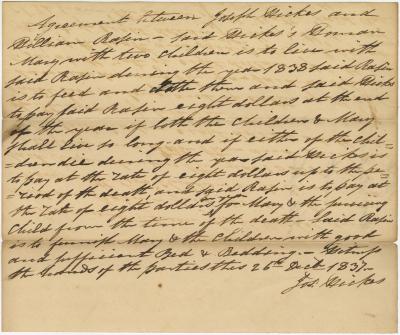 Agreement between Joseph Dickes and
William Rapin - said Dickes's Woman
Mary with two children is to live with
said Rapin during the year 1838 said Rapin
is to feed and them and said Dickes
to pay said Rapin eight dollars at the end
of the year if both the Children & Mary
shall live so long - and if either of the Chil-
=dren die during the year said Dickes is
to pay at the rate of eight dollars up to the pe-
=riod of the death and said Rapin is to pay at
the rate of eight dollars for Mary & the surviving
Child from the time of the death - Said Rapin
is to furnish Mary & the Children with good
and sufficient Bed & Bedding. - Witness
the hands of the parties this 26th Dect 1837 -
Jos. Dickes